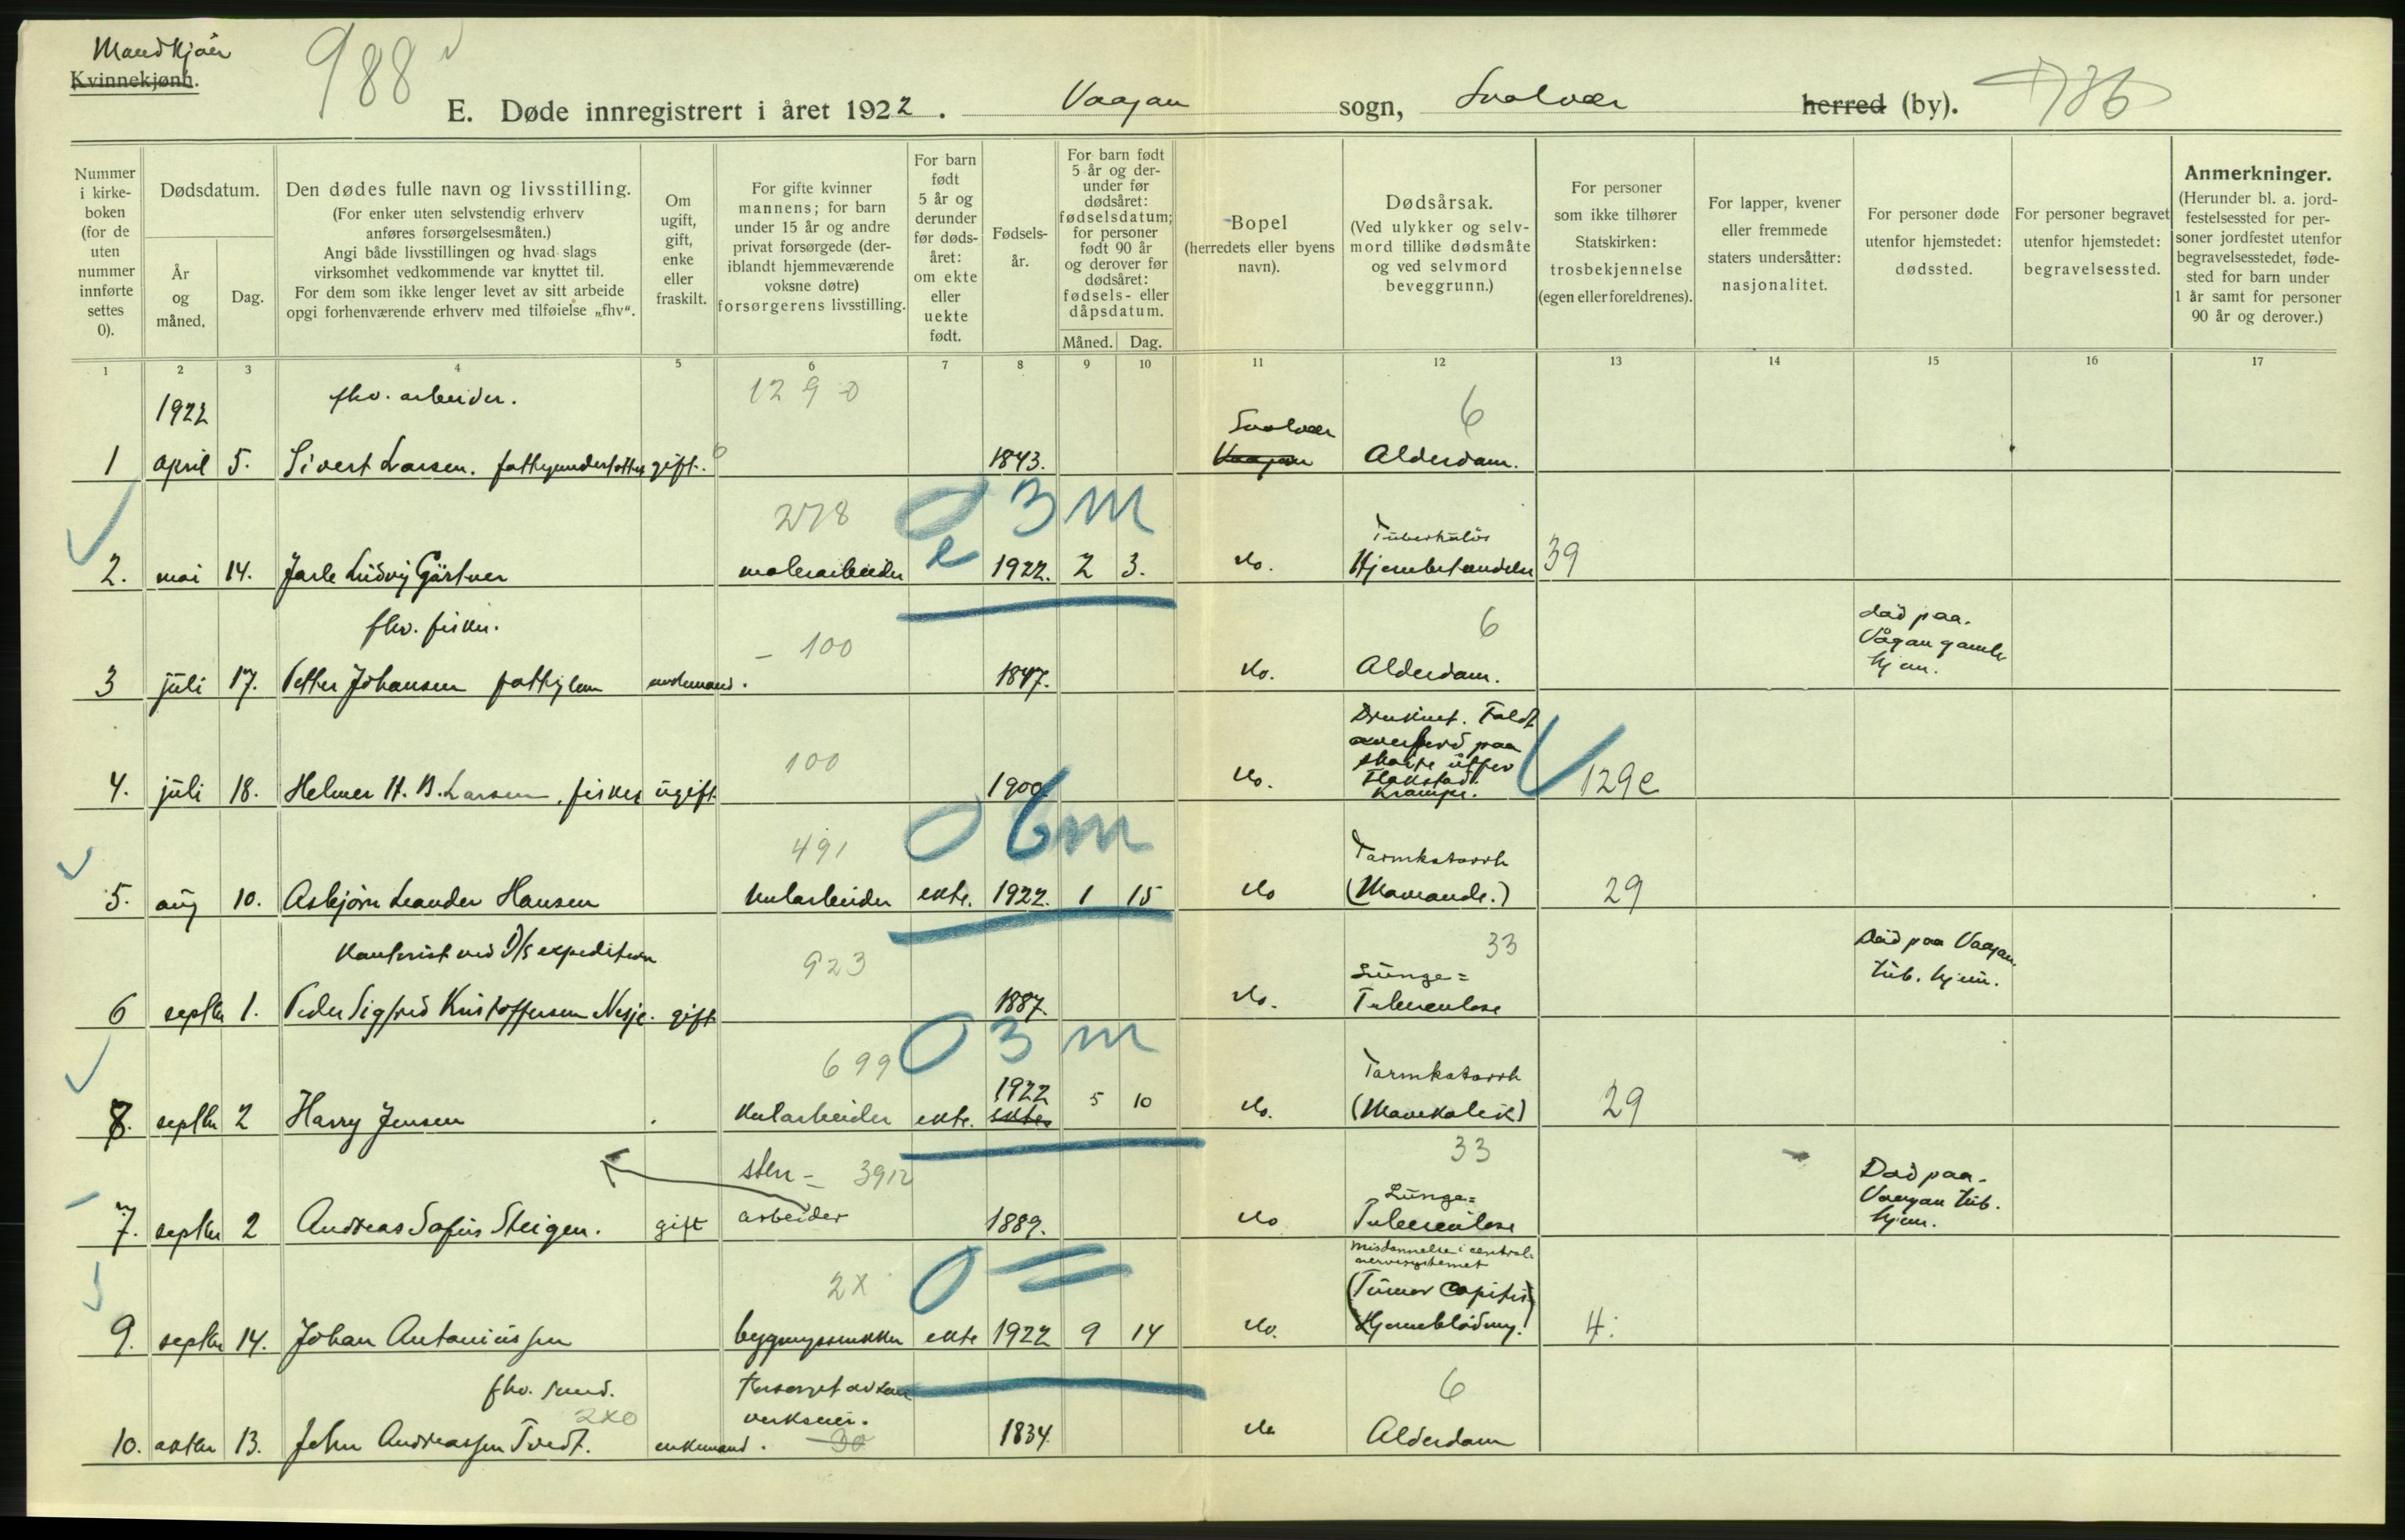 Mandkjøn
Kvinnekjønn.
988
E. Døde innregistrert i året 1922. Vaagan sogn, Svolvær herred (by). 786
Nummer i kirke-boken (for de uten nummer innførte settes 0).
Dødsdatum.
År og måned.
Dag.
Den dødes fulle navn og livsstilling.
(For enker uten selvstendig erhverv anføres forsørgelsesmåten.)
Angi både livsstillingen og hvad slags virksomhet vedkommende var knyttet til.
For dem som ikke lenger levet av sitt arbeide opgi forhenværende erhverv med tilføielse „fhv“.
Om ugift, gift, enke eller fraskilt.
For gifte kvinner mannens; for barn under 15 år og andre privat forsørgede (der-iblandt hjemmeværende voksne døtre) forsørgerens livsstilling.
For barn født 5 år og derunder før døds-året: om ekte eller uekte født.
Fødsels-år.
For barn født 5 år og der-under før dødsåret: fødselsdatum; for personer født 90 år og derover før dødsåret: fødsels- eller dåpsdatum.
Måned. Dag.
Bopel (herredets eller byens navn).
Dødsårsak.
(Ved ulykker og selv-mord tillike dødsmåte og ved selvmord beveggrunn.)
For personer som ikke tilhører Statskirken: trosbekjennelse (egen eller foreldrenes).
For lapper, kvener eller fremmede staters undersåtter: nasjonalitet.
For personer døde utenfor hjemstedet: dødssted.
For personer begravet utenfor hjemstedet: begravelsessted.
Anmerkninger.
(Herunder bl. a. jord-festelsessted for per-soner jordfestet utenfor begravelsesstedet, føde-sted for barn under 1 år samt for personer 90 år og derover.)
1 2 3 4 5 6 7 8 9 10 11 12 13 14 15 16 17
1922 fhv. arbeider. 1290 Svolvær 6
1 april 5. Sivert Larsen. fattigunderstøttet gift. 1843. Vaagan Alderdom.
278 0 3 m Tuberkuløs
2. mai 14. Jarle Ludvig Gärtner malerarbeider e 1922. 2 3. do. Hjernebetændelse 39
fhv. fisker. 100 6 død paa Vågan gamlehjem.
3 juli 17. Petter Johansen fattiglem enkemand. 1847. do. Alderdom.
100 Druknet. Faldt overbord paa skøite utfor Flakstad. Krampe. 129e
4. juli 18. Helmer H. B. Larsen, fisker ugift 1900. do.
491 0 6 m Tarmkatarrh
5. aug 10. Asbjørn Leander Hansen kularbeider ekte. 1922. 1 15 do (Maveonde.) 29
Kontorist ved D/S expedition 923 33 Død paa Vaagan tub. hjem.
6 septbr 1. Peder Sigfred Kristoffersen Nesje. gift 1887. do. Lunge= Tuberculose
699 0 3 m Tarmkatarrh
8. septbr 2 Harry Jensen kularbeider ekte. 1922 5 10 do. (Mavekolik) 29
sten= 3912 33 Død paa Vaagan tub. hjem.
7. septbr 2 Andreas Sofus Steigen. gift arbeider 1889. do Lunge= Tuberculose
2x 0 Misdannelse i central-nervesystemet
9. septbr 14. Johan Antoniussen bygningssnekker ekte 1922 9 14 do. (Tumor capitis) Hjerneblødning. 4.
fhv. 2x0 6
10. oktbr 13. John Andreassen Tvedt. enkemand. 30 1834. do Alderdom